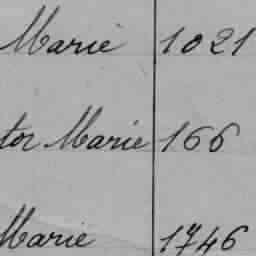 Marie 1021
tor Marie 166
Marie 1746